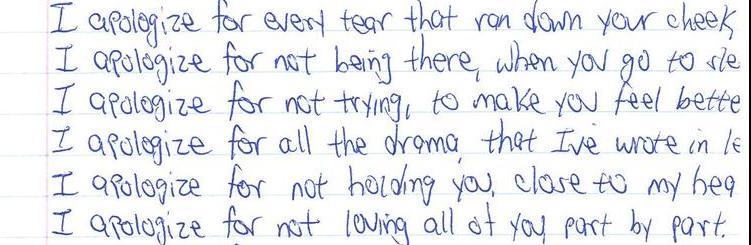 I apologize for every tear that ran down your cheek
I apologize for not being there, when you go to sle
I apologize for not trying, to make you feel bette
I apologize for all the drama, that I've wrote in le
I apologize for not holding you, close to my hea
I apologize for not loving all of you part by part.